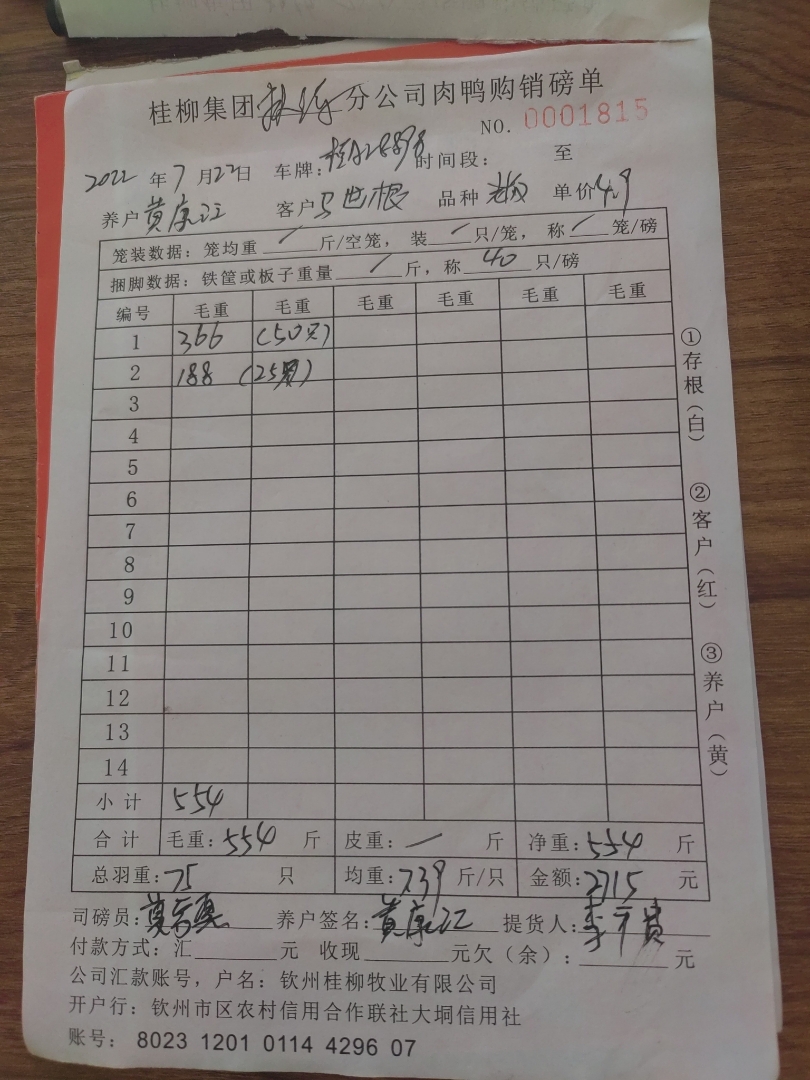 桂柳集团 分公司肉鸭购销磅单
NO. 0001815
2022年7月22日 车牌: 时间段: 至
养户 黄康江 客户 马世根 品种 单价4.9
笼装数据:笼均重 / 斤/空笼, 装 / 只/笼, 称 / 笼/磅
捆脚数据:铁筐或板子重量 / 斤,称 40 只/磅
编号 毛重 毛重 毛重 毛重 毛重 毛重
1 366 (50只)
2 188 (25只)
3
4
5
6
7
8
9
10
11
12
13
14
小计 554
合计 毛重:554 斤 皮重:/ 斤 净重:554 斤
总羽重:75 只 均重:7.39 斤/只 金额:2715 元
司磅员: 养户签名:黄康江 提货人:
付款方式:汇 元 收现 元欠(余): 元
公司汇款账号,户名:钦州桂柳牧业有限公司
开户行:钦州市区农村信用合作联社大垌信用社
账号: 8023 1201 0114 4296 07
①存根(白) ②客户(红) ③养户(黄)